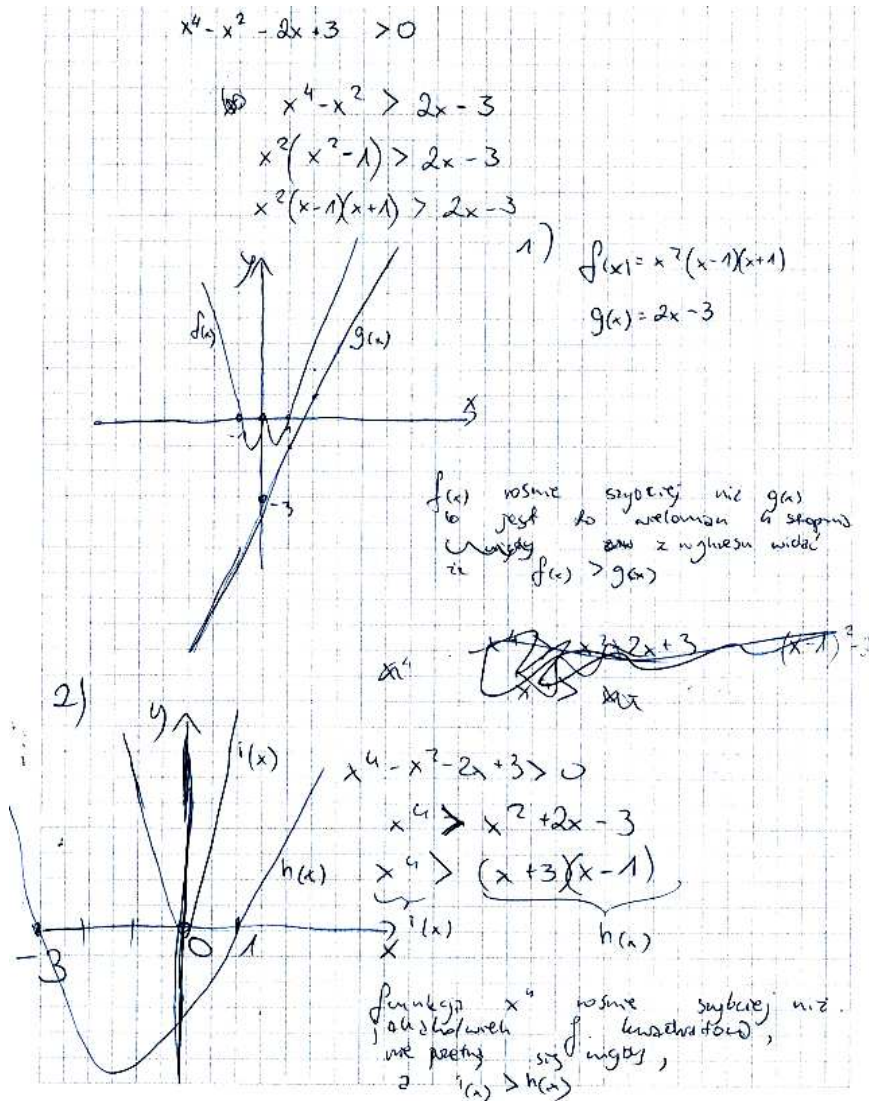 x⁴ - x² - 2x + 3 > 0
x⁴ - x² > 2x - 3
x²(x² - 1) > 2x - 3
x²(x-1)(x+1) > 2x - 3
1)
f(x) = x²(x-1)(x+1)
g(x) = 2x - 3
y
f(x)
g(x)
x
-1
1
-3
f(x) rośnie szybciej niż g(x)
bo jest to wielomian 4 stopnia
z wykresu widać
iż f(x) > g(x)
2)
y
i(x)
h(x)
-3
0
1
x
x⁴ - x² - 2x + 3 > 0
x⁴ > x² + 2x - 3
x⁴ > (x+3)(x-1)
i(x)
h(x)
funkcja x⁴ rośnie szybciej niż
jakakolwiek f kwadratowa,
nie przetną się nigdy,
a i(x) > h(x)